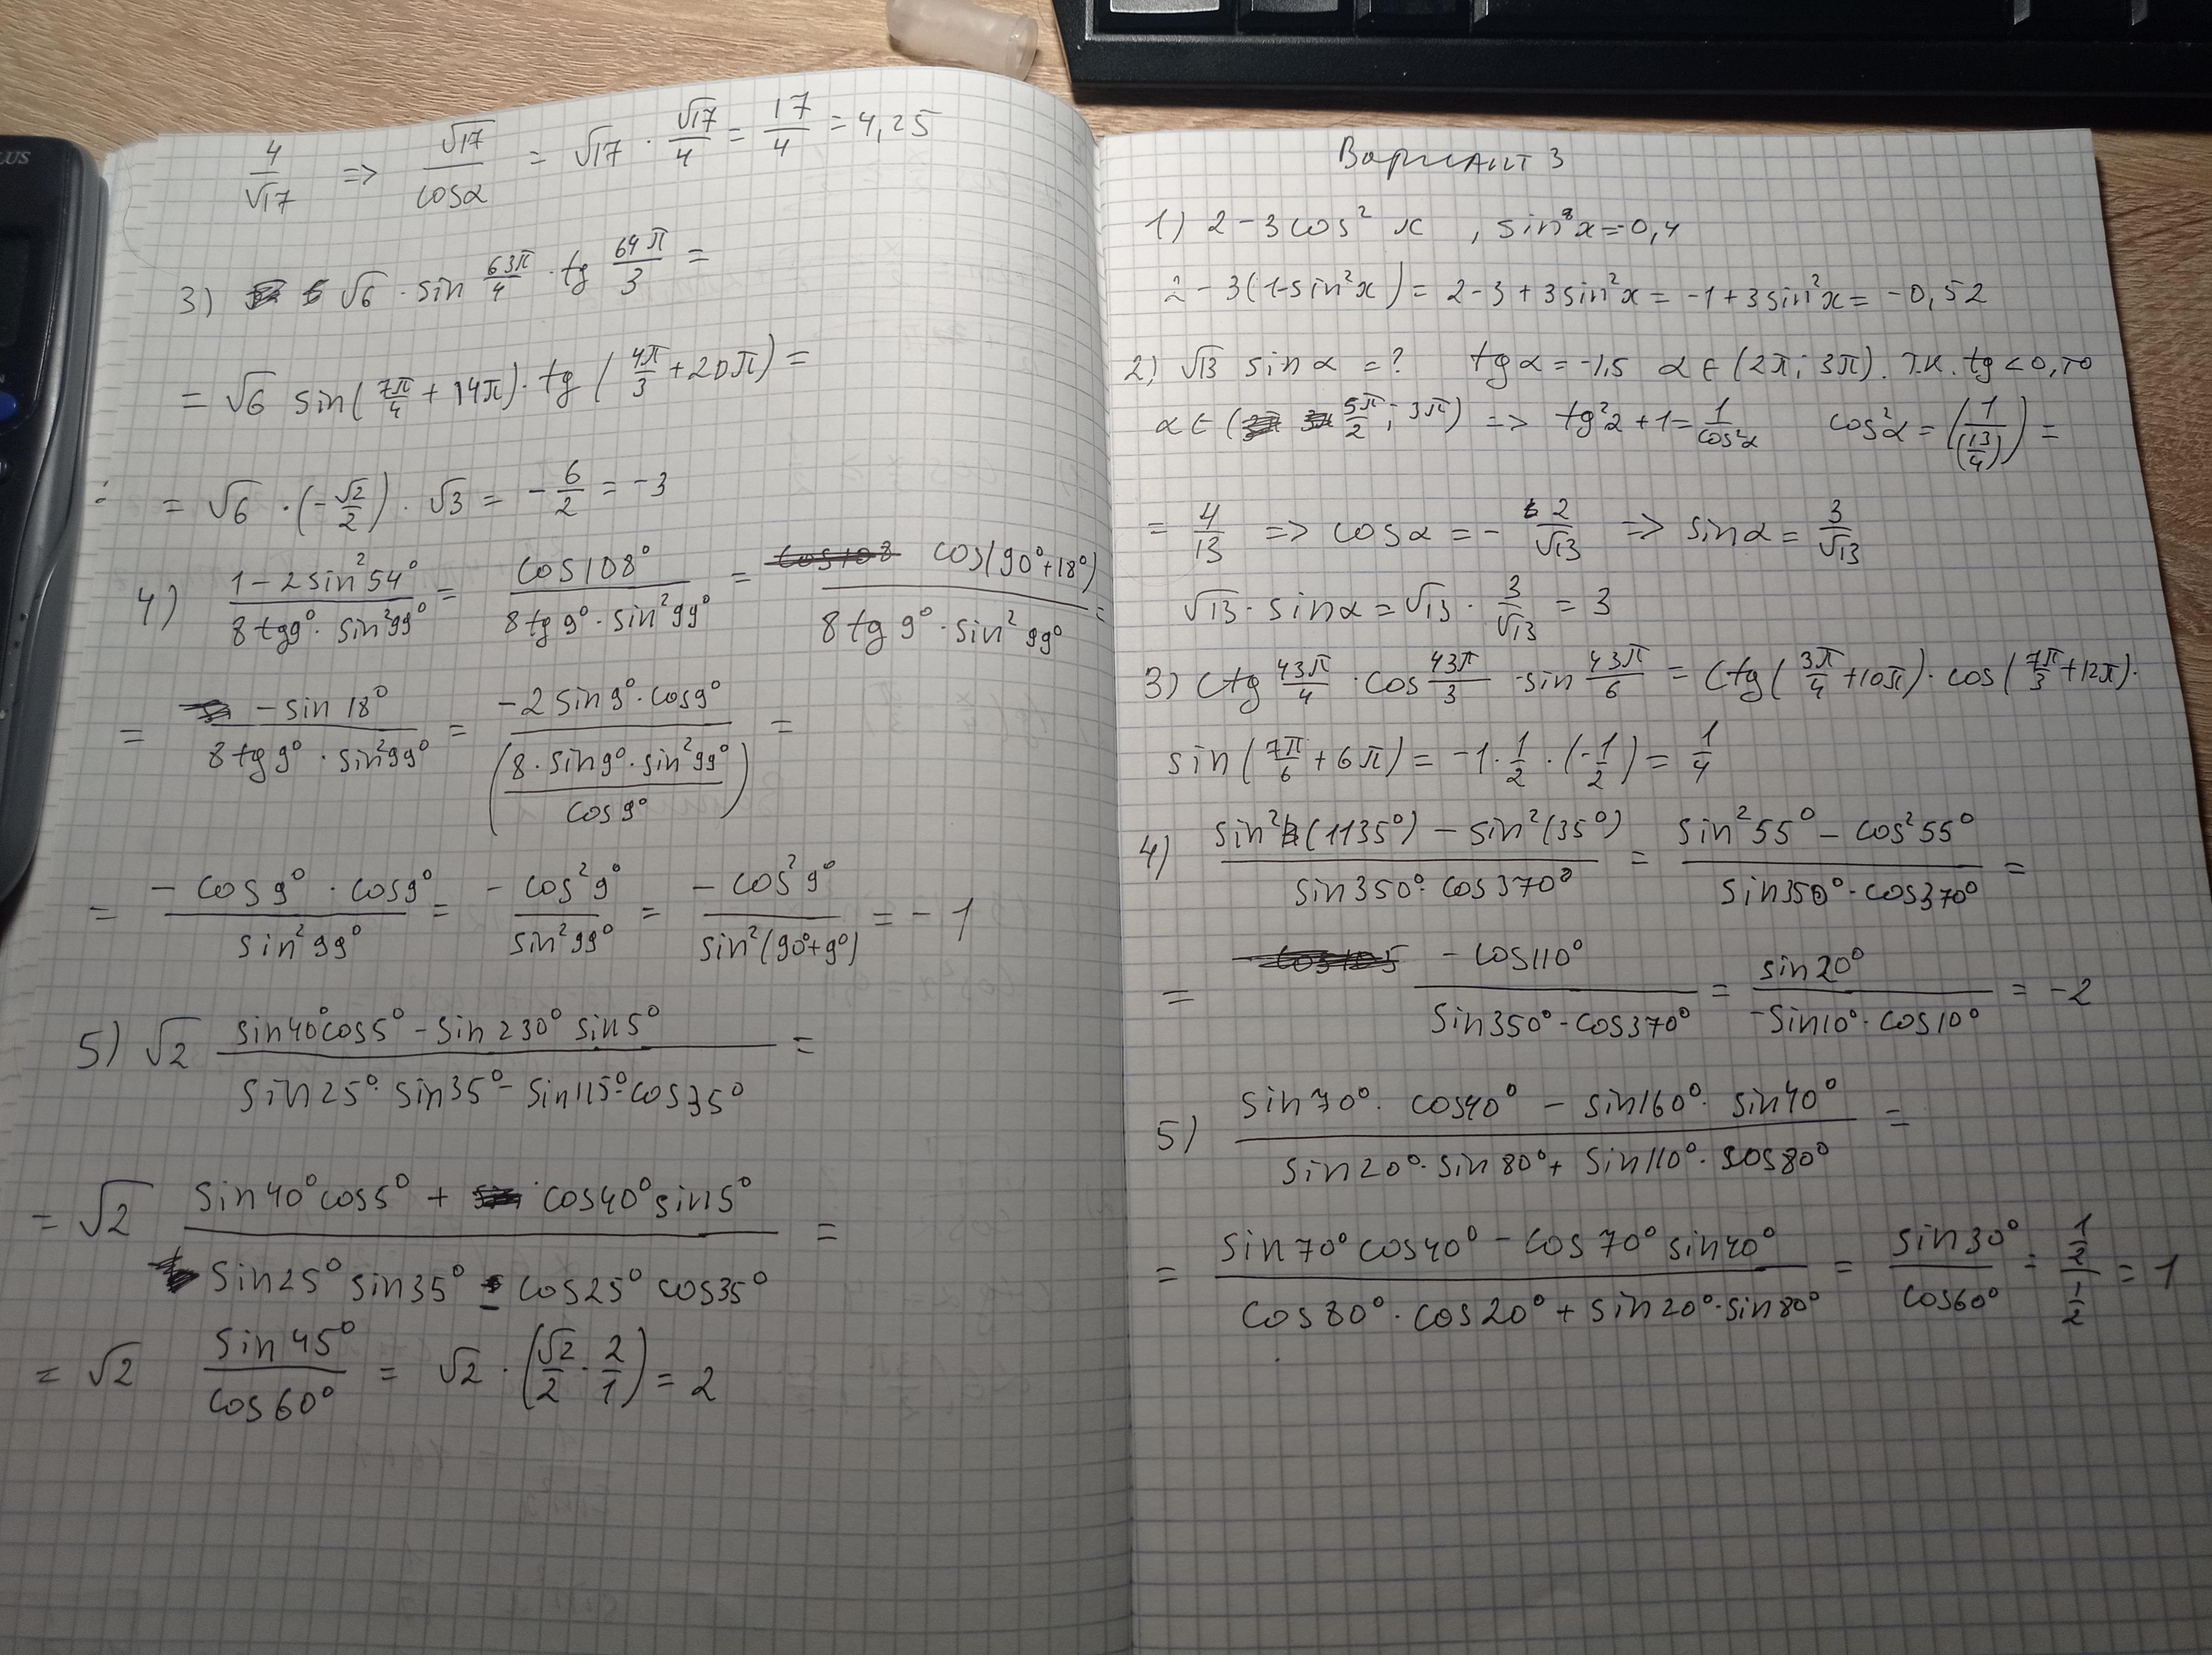 LUS
4/√17 => √17/cosα = √17 · √17/4 = 17/4 = 4,25
3) √6 · sin 63π/4 · tg 64π/3 =
= √6 sin(7π/4 + 14π) · tg(4π/3 + 20π) =
= √6 · (-√2/2) · √3 = -6/2 = -3
4) (1 - 2sin²54°)/(8tg9° · sin²99°) = cos108°/(8tg9° · sin²99°) = cos(90°+18°)/(8tg9° · sin²99°) =
= -sin18°/(8tg9° · sin²99°) = (-2sin9° · cos9°)/((8 · sin9° · sin²99°)/cos9°) =
= (-cos9° · cos9°)/sin²99° = -cos²9°/sin²99° = -cos²9°/sin²(90°+9°) = -1
5) √2 (sin40°cos5° - sin230° sin5°)/(sin25° · sin35° - sin115° · cos35°) =
= √2 (sin40°cos5° + cos40°sin5°)/(sin25°sin35° - cos25°cos35°) =
= √2 sin45°/cos60° = √2 · (√2/2 · 2/1) = 2
Вариант 3
1) 2 - 3cos²x , sin x = -0,4
2 - 3(1-sin²x) = 2-3+3sin²x = -1+3sin²x = -0,52
2) √13 sinα = ? tgα = -1,5 α∈(2π; 3π). т.к. tg<0, то
α∈(5π/2; 3π) => tg²α+1 = 1/cos²α cos²α = (1/(13/4)) =
= 4/13 => cosα = -2/√13 => sinα = 3/√13
√13 · sinα = √13 · 3/√13 = 3
3) ctg 43π/4 · cos 43π/3 · sin 43π/6 = ctg(3π/4 + 10π) · cos(7π/3 + 12π) ·
sin(7π/6 + 6π) = -1 · 1/2 · (-1/2) = 1/4
4) (sin²(1135°) - sin²(35°))/(sin350° · cos370°) = (sin²55° - cos²55°)/(sin350° · cos370°) =
= -cos110°/(sin350° · cos370°) = sin20°/(-sin10° · cos10°) = -2
5) (sin70° · cos40° - sin160° · sin40°)/(sin20° · sin80° + sin110° · cos80°) =
= (sin70°cos40° - cos70°sin40°)/(cos80° · cos20° + sin20° · sin80°) = sin30°/cos60° = (1/2)/(1/2) = 1